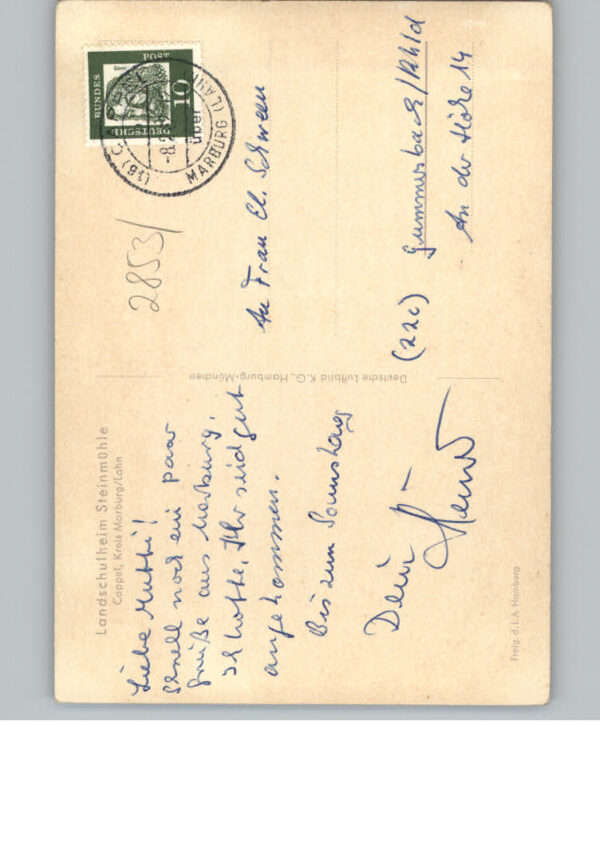 Landschulheim Steinmühle
Cappel, Kreis Marburg/Lahn
Liebe Mutti!
Schnell noch ein paar
Grüße aus Marburg.
Ich hoffe, Ihr seid gut
angekommen.
Bis zum Samstag
Dein
Deutsche Luftbild K.G., Hamburg-München
Freig. d. L.A. Hamburg
2853/
DEUTSCHE
BUNDES
POST
10
(16)
-8.2
über
MARBURG (LAHN)
An Frau El. Schween
(22c) Gummersbach/Rhld
An der Höhe 14